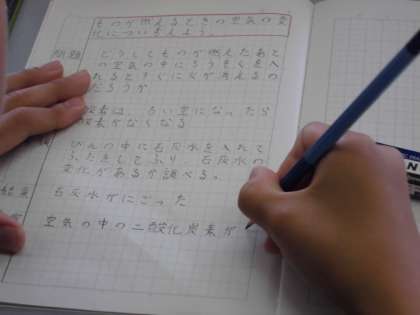 ものが燃えるときの空気の変
化について考えよう。
問題
どうしてものが燃えたあと
の空気の中にろうそくを入
れるとすぐに火が消えるの
だろうか
酸素は、
なったら
酸素がなくなる
びんの中に石灰水を入れて
ふたをしてふり、石灰水の
変化があるか調べる。
結果
石灰水がにごった
空気の中の二酸化炭素が